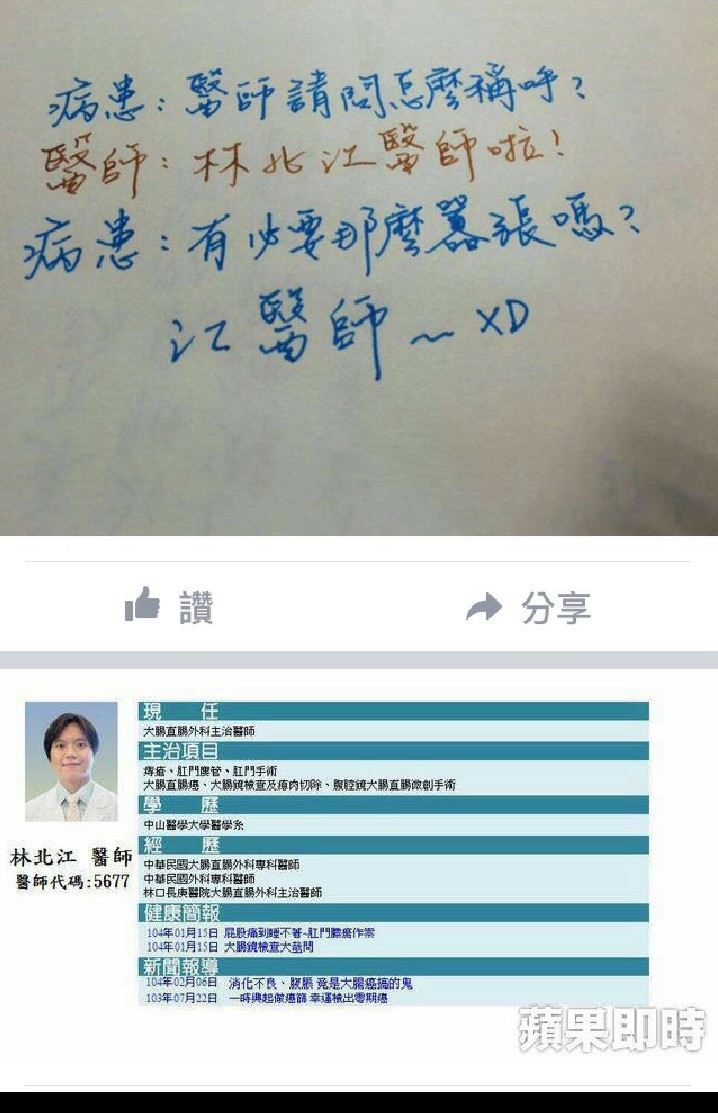 病患：醫師請問怎麼稱呼？
醫師：林北江醫師啦！
病患：有必要那麼囂張嗎？
江醫師～XD
讚 分享
現 任
大腸直腸外科主治醫師
主治項目
痔瘡、肛門廔管、肛門手術
大腸直腸癌、大腸鏡檢查及瘜肉切除、腹腔鏡大腸直腸微創手術
學 歷
中山醫學大學醫學系
經 歷
中華民國大腸直腸外科專科醫師
中華民國外科專科醫師
林口長庚醫院大腸直腸外科主治醫師
林北江 醫師
醫師代碼:5677
健康簡報
104年01月15日 屁股痛到睡不著~肛門膿瘍作祟
104年01月15日 大腸鏡檢查大哉問
新聞報導
104年02月06日 消化不良、腹脹 竟是大腸癌搞的鬼
103年07月22日 一時興起做癌篩 幸運檢出零期癌
蘋果即時